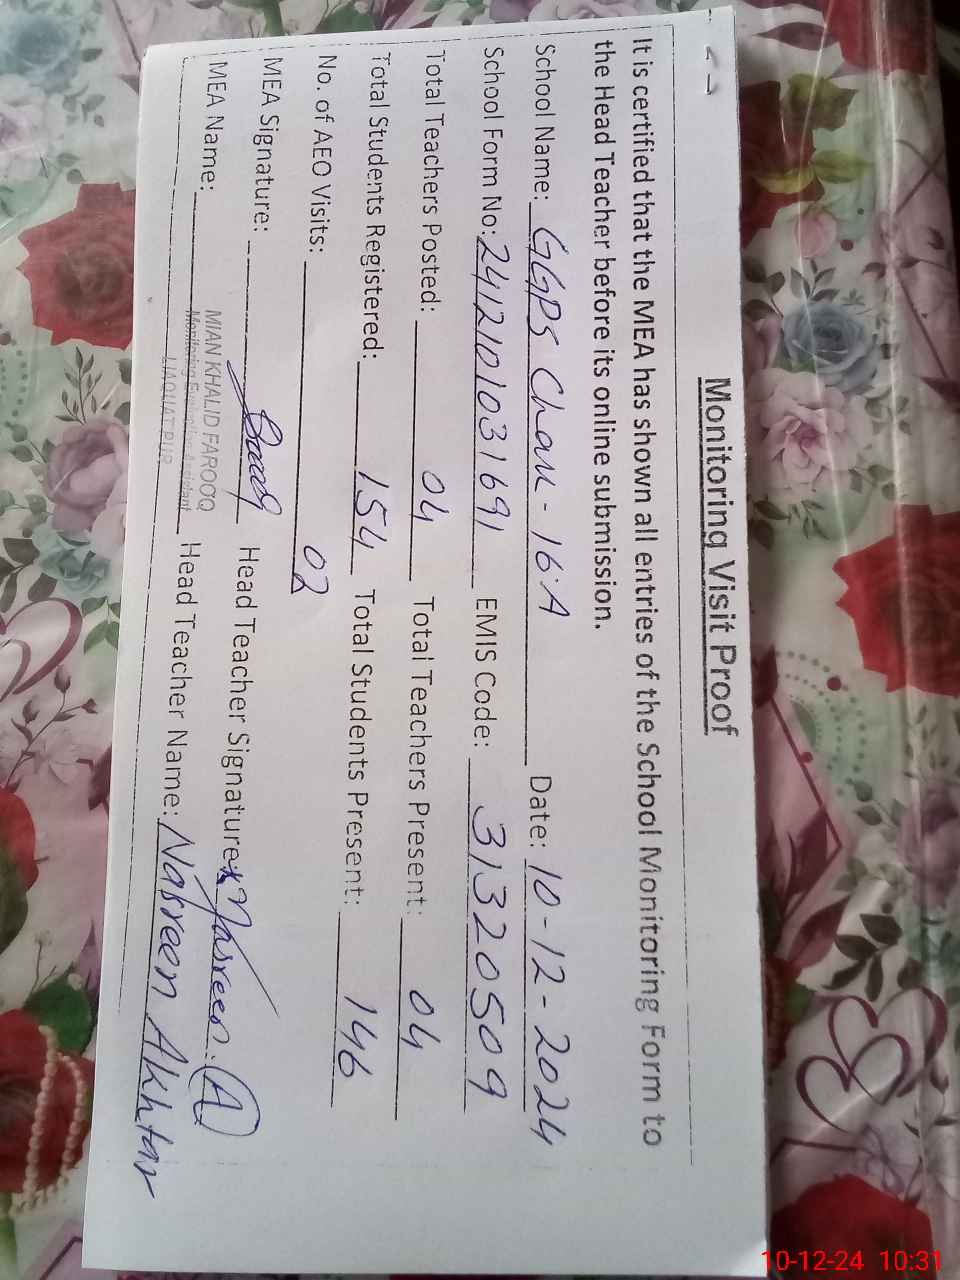 Monitoring Visit Proof
It is certified that the MEA has shown all entries of the School Monitoring Form to
the Head Teacher before its online submission.
School Name: GGPS Chak - 16.A Date: 10-12-2024
School Form No: 2412101031691 EMIS Code: 31320509
Total Teachers Posted: 04 Total Teachers Present: 04
Total Students Registered: 154 Total Students Present: 146
No. of AEO Visits: 02
MEA Signature: Head Teacher Signature: Nasreen.A
MIAN KHALID FAROOQ
MEA Name: Monitoring Evaluation Assistant Head Teacher Name: Nasreen Akhtar
LIAQUATPUR
10-12-24 10:31